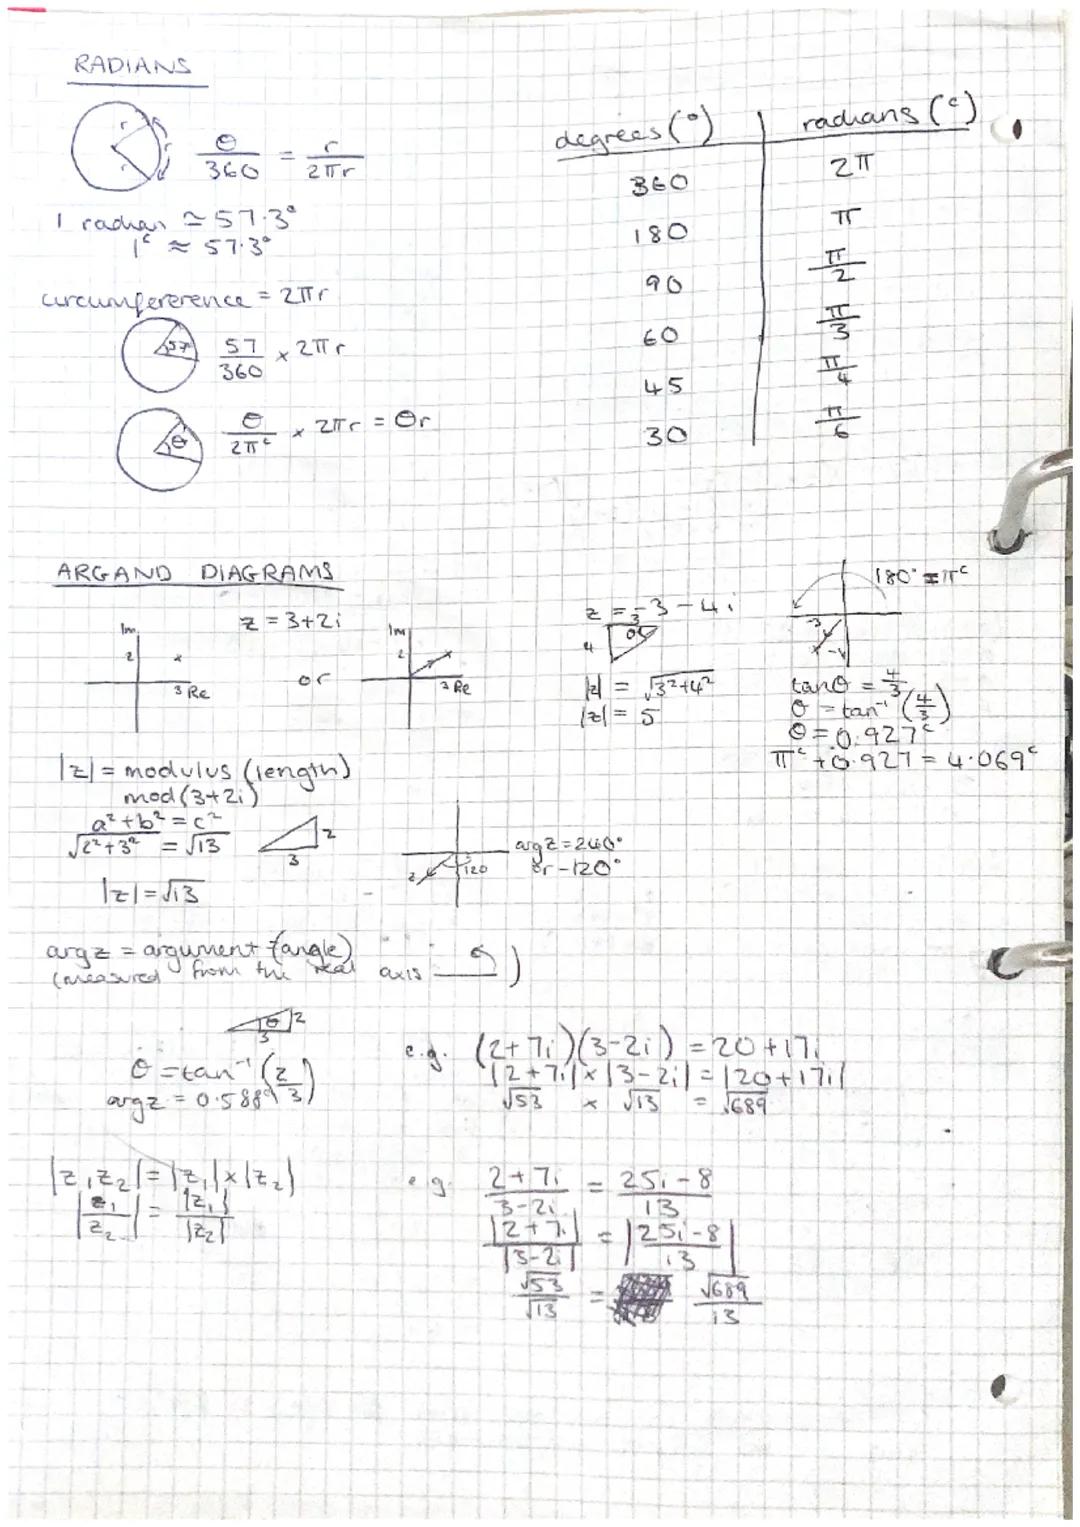 RADIANS
r
r
r
θ/360 = r/2πr
1 radian ≈ 57.3°
1ᶜ ≈ 57.3°
circumfererence = 2πr
57
57/360 × 2πr
θ
θ/2πᶜ × 2πr = θr
degrees (°) radians (ᶜ)
360 2π
180 π
90 π/2
60 π/3
45 π/4
30 π/6
ARGAND DIAGRAMS
z = 3+2i
Im
2
3 Re
or
Im
2
3 Re
|z| = modulus (length)
mod(3+2i)
a²+b² = c²
√2²+3² = √13
2
3
|z| = √13
z = -3 - 4i
3
4
|z| = √3²+4²
|z| = 5
180° = πᶜ
-3
-4
tanθ = 4/3
θ = tan⁻¹(4/3)
θ = 0.927ᶜ
πᶜ + 0.927 = 4.069ᶜ
z
120
arg z = 240°
or -120°
arg z = argument (angle)
(measured from the real axis )
θ 2
3
θ = tan⁻¹(2/3)
arg z = 0.588ᶜ
e.g. (2+7i)(3-2i) = 20+17i
|2+7i| × |3-2i| = |20+17i|
√53 × √13 = √689
|z₁z₂| = |z₁| × |z₂|
|z₁/z₂| = |z₁|/|z₂|
e.g. 2+7i/3-2i = 25i-8/13
|2+7i|/|3-2i| = |25i-8/13|
√53/√13 = √689/13